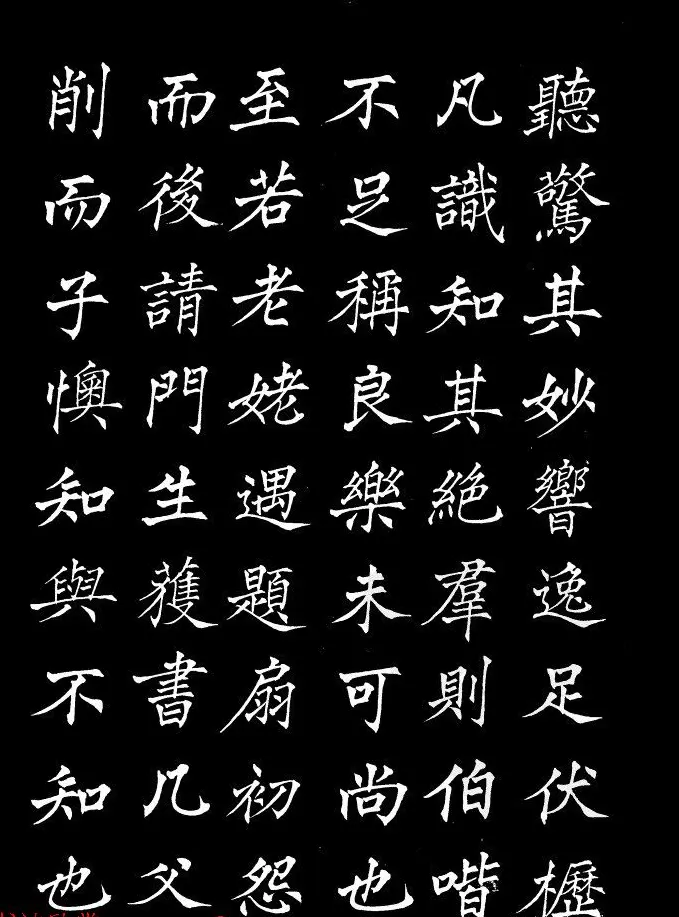 聽驚其妙響逸足伏櫪
凡識知其絕羣則伯喈
不足稱良樂未可尚也
至若老姥遇題扇初怨
而後請門生獲書几父
削而子懊知與不知也